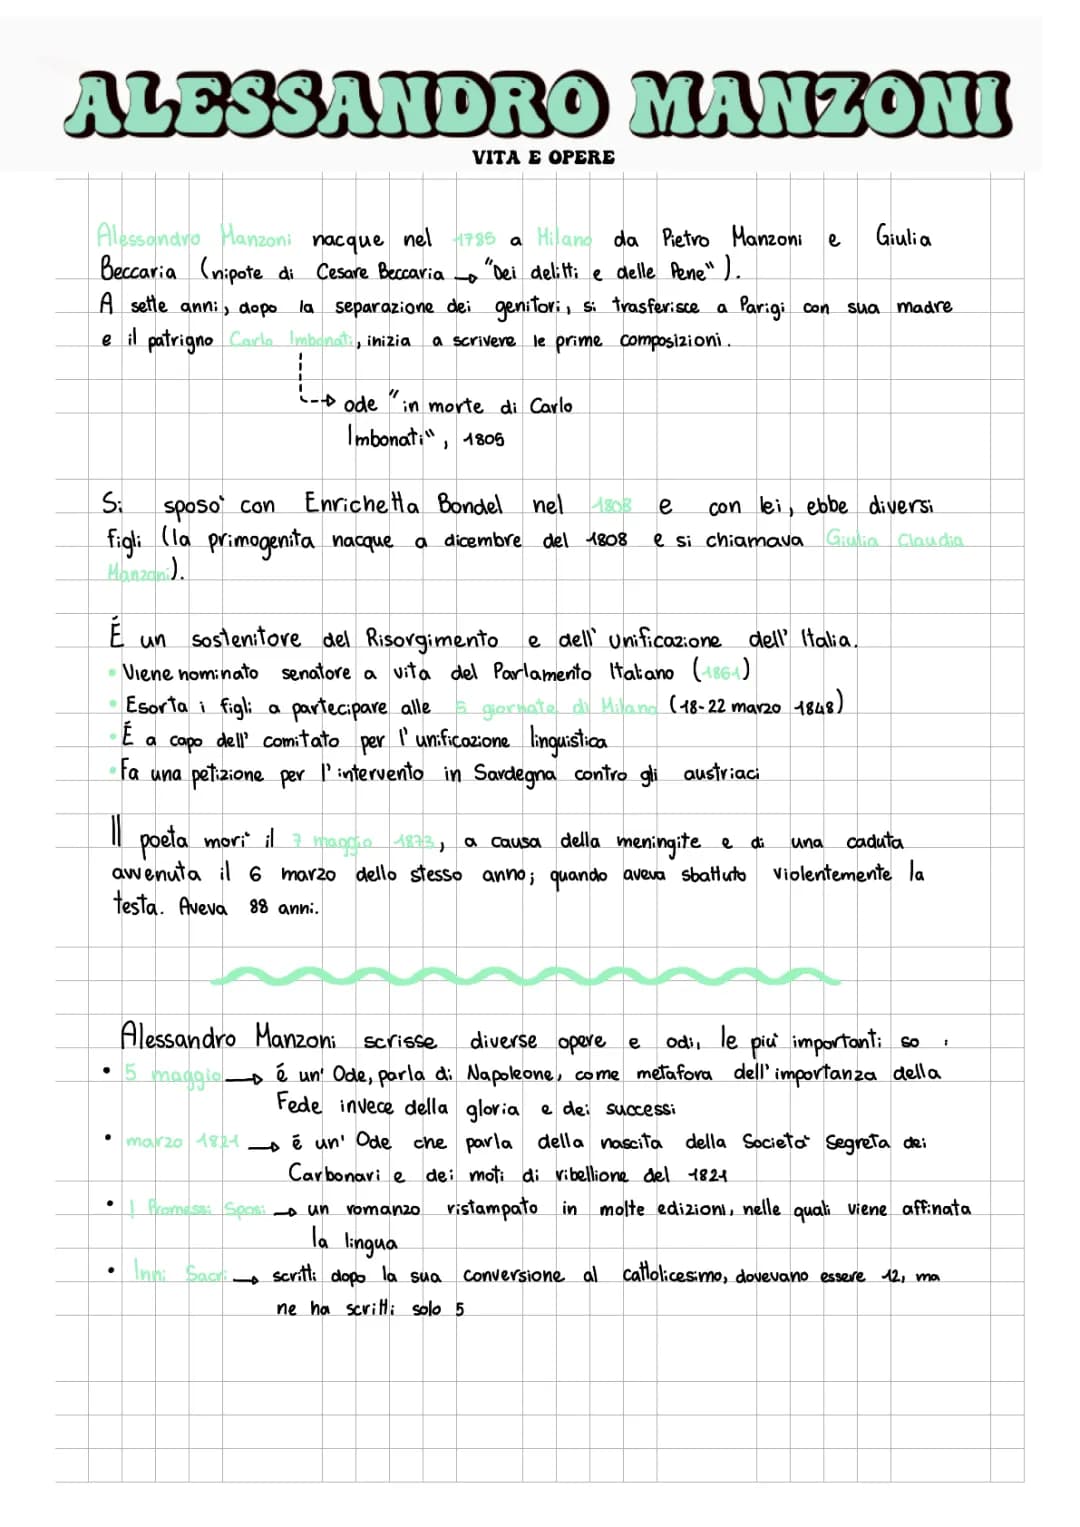 ALESSANDRO MANZONI
VITA E OPERE
Alessandro Manzoni nacque nel 1785 a Milano da Pietro Manzoni e Giulia
Beccaria (nipote di Cesare Beccaria → "Dei delitti e delle Pene").
A sette anni, dopo la separazione dei genitori, si trasferisce a Parigi con sua madre
e il patrigno Carlo Imbonati, inizia a scrivere le prime composizioni.
→ ode "in morte di Carlo
Imbonati", 1805
Si sposò con Enrichetta Bondel nel 1808 e con lei, ebbe diversi
figli (la primogenita nacque a dicembre del 1808 e si chiamava Giulia Claudia
Manzoni).
É un sostenitore del Risorgimento e dell' unificazione dell' Italia.
• Viene nominato senatore a vita del Parlamento Italiano (1861)
• Esorta i figli a partecipare alle 5 giornate di Milano (18-22 marzo 1848)
• É a capo dell' comitato per l'unificazione linguistica
• Fa una petizione per l'intervento in Sardegna contro gli austriaci
Il poeta morì il 7 maggio 1873, a causa della meningite e di una caduta
avvenuta il 6 marzo dello stesso anno; quando aveva sbattuto violentemente la
testa. Aveva 88 anni.
Alessandro Manzoni scrisse diverse opere e odi, le più importanti so :
• 5 maggio → é un' Ode, parla di Napoleone, come metafora dell'importanza della
Fede invece della gloria e dei successi
• marzo 1821 → é un' Ode che parla della nascita della Società Segreta dei
Carbonari e dei moti di ribellione del 1821
• I Promessi Sposi → un romanzo ristampato in molte edizioni, nelle quali viene affinata
la lingua
• Inni Sacri → scritti dopo la sua conversione al cattolicesimo, dovevano essere 12, ma
ne ha scritti solo 5